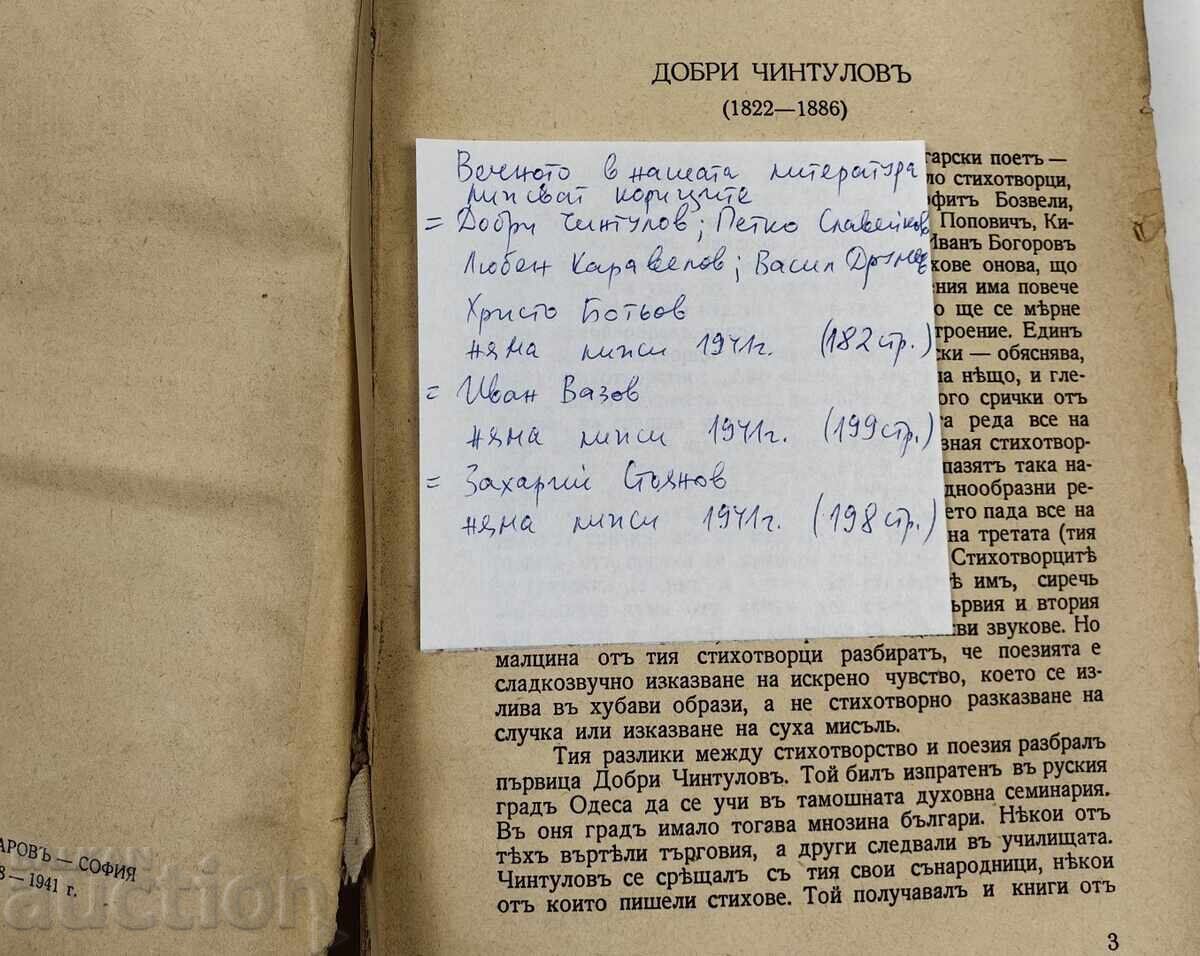 ДОБРИ ЧИНТУЛОВЪ
(1822—1886)
Вечното в нашата литература
липсват кориците
= Добри Чинтулов; Петко Славейков
Любен Каравелов; Васил Друмев
Христо Ботьов
няма липси 1941г. (182 стр.)
= Иван Вазов
няма липси 1941г. (199 стр.)
= Захарий Стоянов
няма липси 1941г. (198 стр.)
гарски поетъ —
ло стихотворци,
офитъ Бозвели,
Поповичъ, Ки-
Иванъ Богоровъ
хове онова, що
ения има повече
о ще се мѣрне
троение. Единъ
ски — обяснява,
на нѣщо, и гле-
ого срички отъ
та реда все на
зная стихотвор-
пазятъ така на-
днообразни ре-
ето пада все на
на третата (тия
Стихотворцитѣ
ѣ имъ, сиречь
ървия и втория
ви звукове. Но
малцина отъ тия стихотворци разбиратъ, че поезията е
сладкозвучно изказване на искрено чувство, което се из-
лива въ хубави образи, а не стихотворно разказване на
случка или изказване на суха мисъль.
Тия разлики между стихотворство и поезия разбралъ
първица Добри Чинтуловъ. Той билъ изпратенъ въ руския
градъ Одеса да се учи въ тамошната духовна семинария.
Въ оня градъ имало тогава мнозина българи. Нѣкои отъ
тѣхъ въртѣли търговия, а други следвали въ училищата.
Чинтуловъ се срѣщалъ съ тия свои сънародници, нѣкои
отъ които пишели стихове. Той получавалъ и книги отъ
3
АРОВЪ — СОФИЯ
8 — 1941 г.
auction